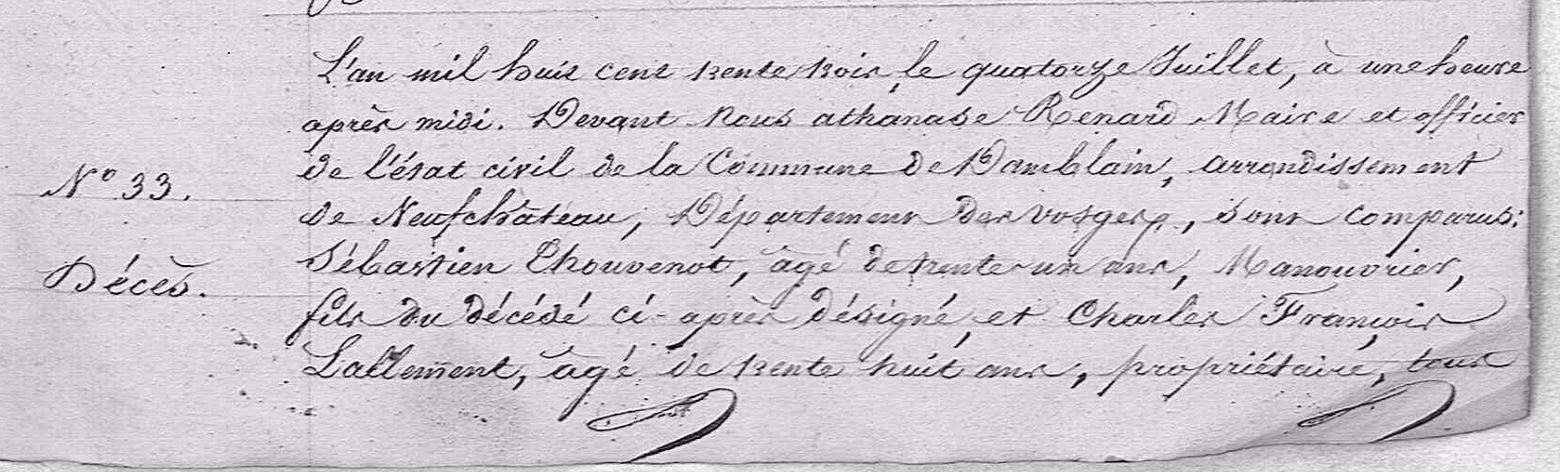 L'an mil huit cent trente trois, le quatorze Juillet, à une heure
après midi. Devant Nous athanase Renard Maire et officier
de l'état civil de la Commune de Damblain, arrondissement
N° 33.
de Neufchâteau, Département des Vosges, sont comparus:
Sébastien Thouvenot, âgé de trente-un ans, Manouvrier,
Décès.
fils du décédé ci-après désigné, et Charles François
Lallement, âgé de trente huit ans, propriétaire, tous